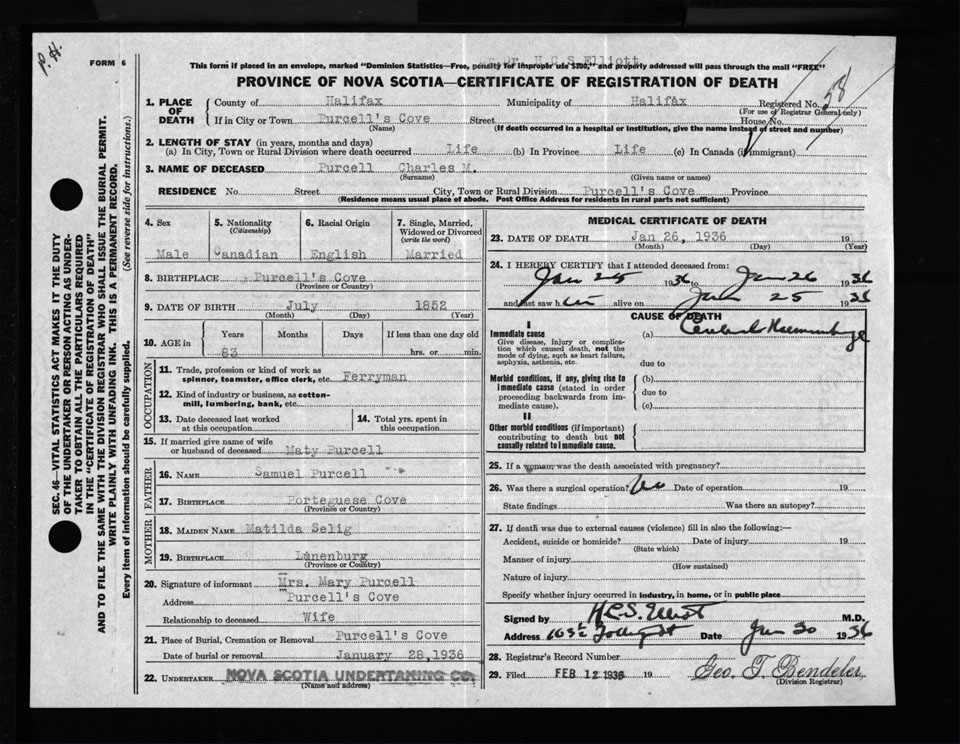 P. H.
FORM 6
Dr. H.C.S.Elliott
This form if placed in an envelope, marked "Dominion Statistics—Free, penalty for improper use $300," and properly addressed will pass through the mail "FREE"
PROVINCE OF NOVA SCOTIA—CERTIFICATE OF REGISTRATION OF DEATH
SEC. 46—VITAL STATISTICS ACT MAKES IT THE DUTY
OF THE UNDERTAKER OR PERSON ACTING AS UNDER-
TAKER TO OBTAIN ALL THE PARTICULARS REQUIRED
IN THE "CERTIFICATE OF REGISTRATION OF DEATH"
AND TO FILE THE SAME WITH THE DIVISION REGISTRAR WHO SHALL ISSUE THE BURIAL PERMIT.
WRITE PLAINLY WITH UNFADING INK. THIS IS A PERMANENT RECORD.
Every item of information should be carefully supplied. (See reverse side for instructions.)
1. PLACE OF DEATH County of Halifax Municipality of Halifax Registered No. 58
(For use of Registrar General only)
If in City or Town Purcell's Cove Street House No.
(Name) (If death occurred in a hospital or institution, give the name instead of street and number)
2. LENGTH OF STAY (in years, months and days)
(a) In City, Town or Rural Division where death occurred Life (b) In Province Life (c) In Canada (if immigrant)
3. NAME OF DECEASED Purcell Charles M.
(Surname) (Given name or names)
RESIDENCE No. Street City, Town or Rural Division Purcell's Cove Province
(Residence means usual place of abode. Post Office Address for residents in rural parts not sufficient)
4. Sex 5. Nationality (Citizenship) 6. Racial Origin 7. Single, Married, Widowed or Divorced (write the word)
Male Canadian English Married
8. BIRTHPLACE Purcell's Cove
(Province or Country)
9. DATE OF BIRTH July 1852
(Month) (Day) (Year)
10. AGE in Years Months Days If less than one day old
83 hrs. or min.
OCCUPATION
11. Trade, profession or kind of work as
spinner, teamster, office clerk, etc. Ferryman
12. Kind of industry or business, as cotton-
mill, lumbering, bank, etc.
13. Date deceased last worked at this occupation 14. Total yrs. spent in this occupation
15. If married give name of wife
or husband of deceased Maty Purcell
FATHER
16. NAME Samuel Purcell
17. BIRTHPLACE Porteguese Cove
(Province or Country)
MOTHER
18. MAIDEN NAME Matilda Selig
19. BIRTHPLACE Lunenburg
(Province or Country)
20. Signature of informant Mrs. Mary Purcell
Address Purcell's Cove
Relationship to deceased Wife
21. Place of Burial, Cremation or Removal Purcell's Cove
Date of burial or removal January 28,1936
22. UNDERTAKER NOVA SCOTIA UNDERTAKING CO.
(Name and address)
MEDICAL CERTIFICATE OF DEATH
23. DATE OF DEATH Jan 26, 1936 19
(Month) (Day) (Year)
24. I HEREBY CERTIFY that I attended deceased from:
Jan 25 1936 to Jan 26 1936
and last saw him alive on Jan 25 1936
CAUSE OF DEATH
I
Immediate cause (a) Cerebral Haemorrhage
Give disease, injury or complica-
tion which caused death, not the
mode of dying, such as heart failure,
asphyxia, asthenia, etc. due to
Morbid conditions, if any, giving rise to (b)
immediate cause (stated in order due to
proceeding backwards from im- (c)
mediate cause).
II
Other morbid conditions (if important)
contributing to death but not
causally related to immediate cause.
25. If a woman, was the death associated with pregnancy?
26. Was there a surgical operation? No Date of operation 19
State findings Was there an autopsy?
27. If death was due to external causes (violence) fill in also the following:—
Accident, suicide or homicide? Date of injury 19
(State which)
Manner of injury
(How sustained)
Nature of injury
Specify whether injury occurred in industry, in home, or in public place
Signed by H.C.S. Elliott M.D.
Address Date Jan 30 1936
28. Registrar's Record Number
29. Filed FEB 12 1936 19 Geo. T. Bendeler
(Division Registrar)